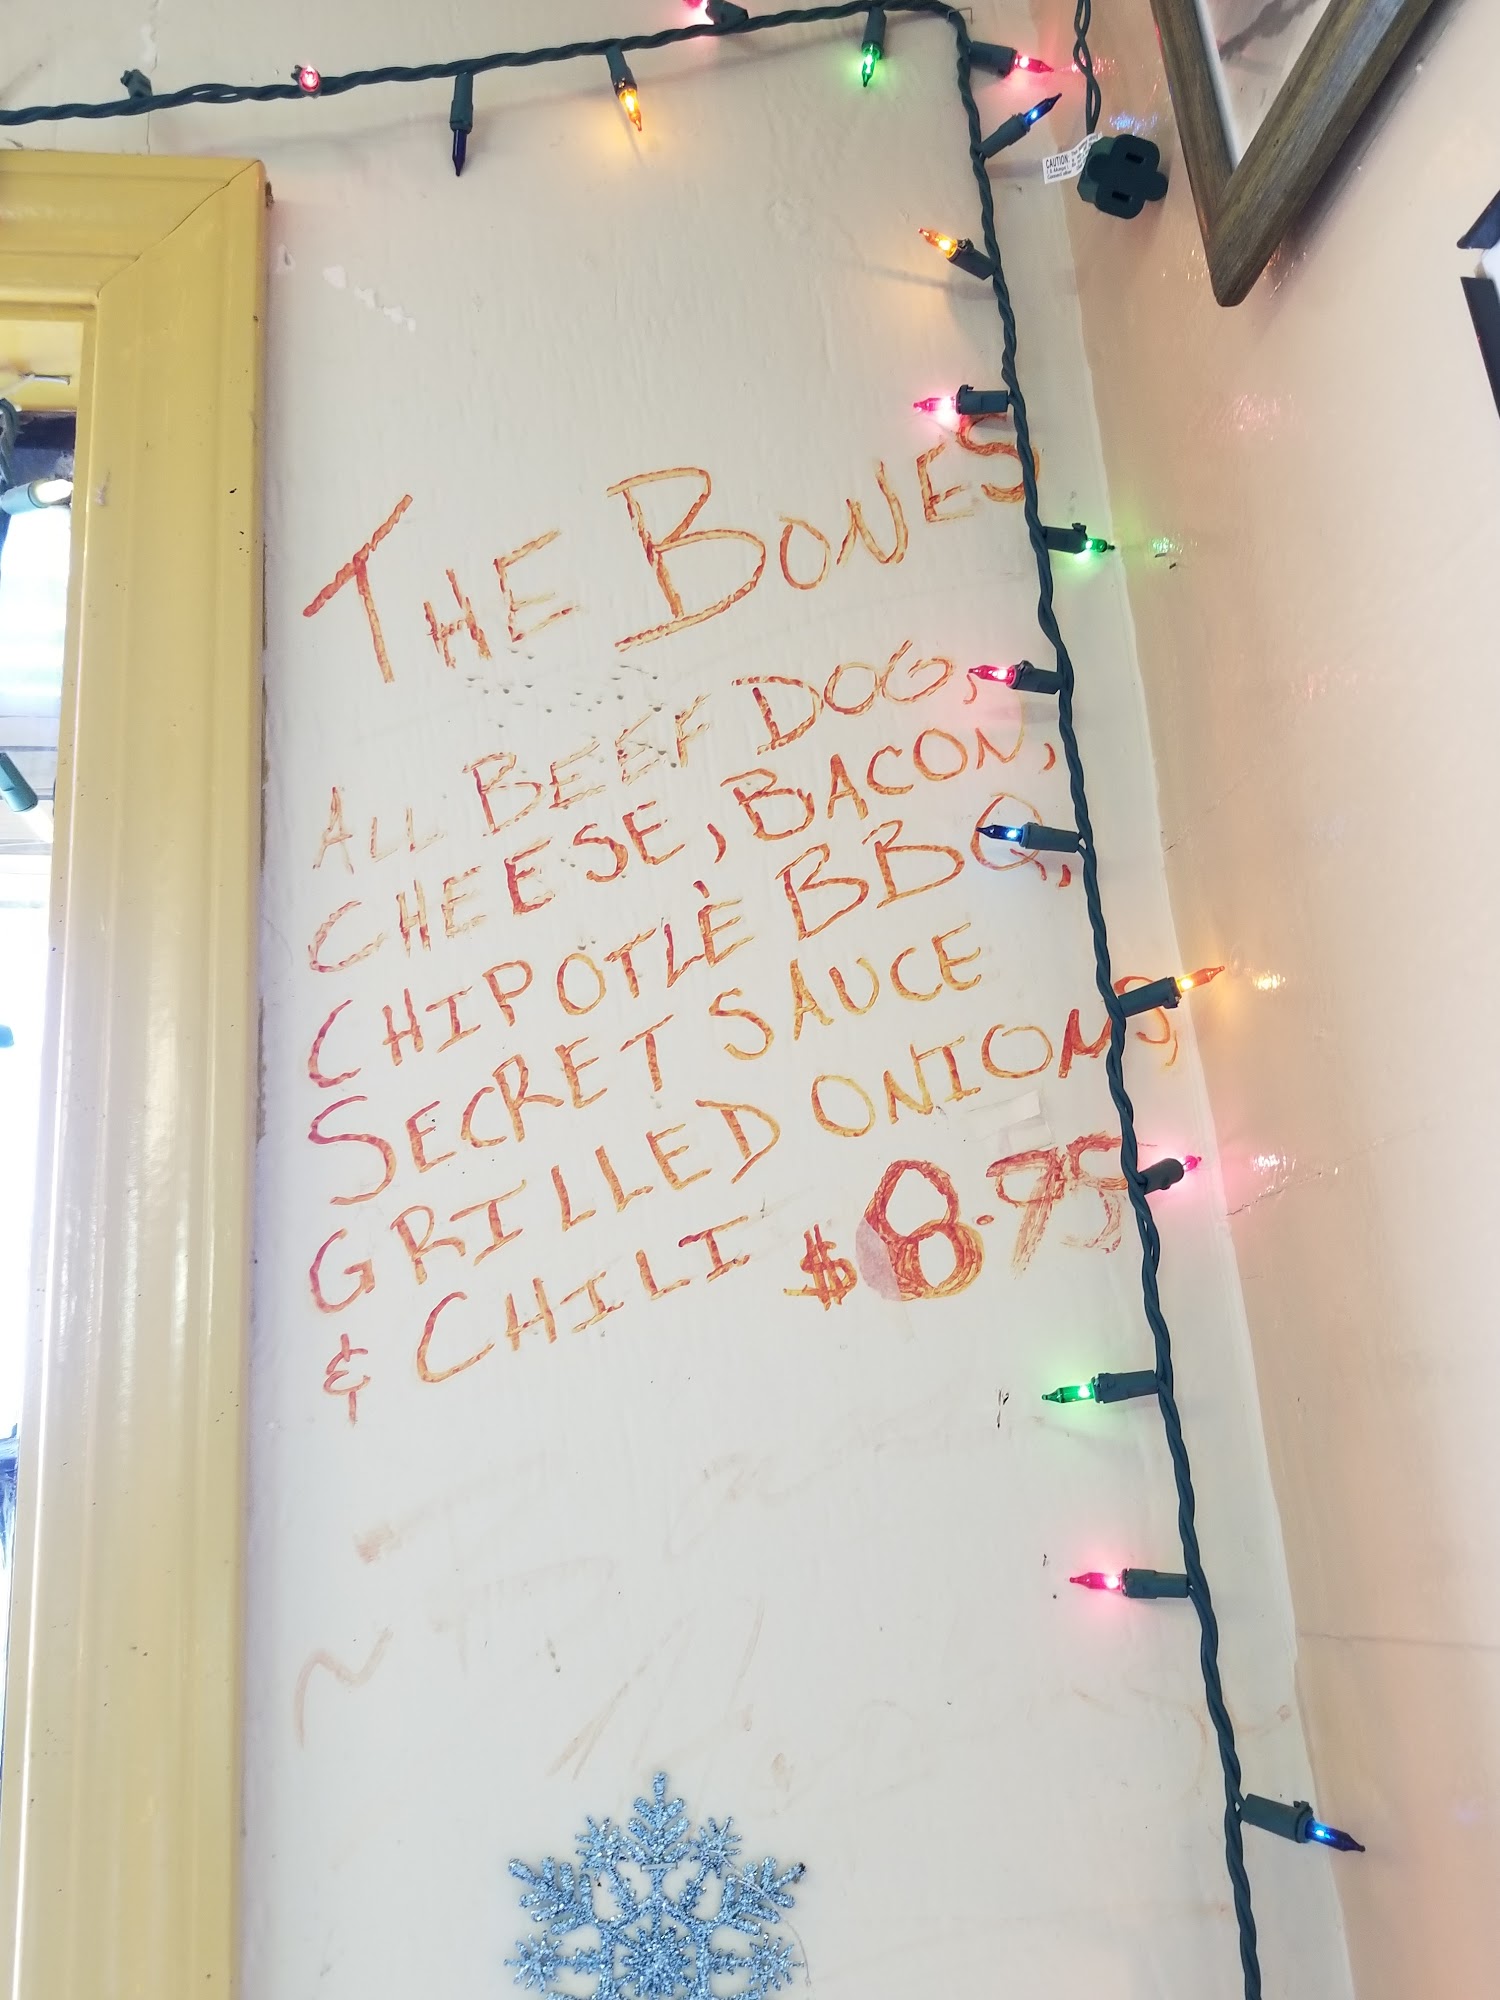 THE BONES
ALL BEEF DOG,
CHEESE, BACON,
CHIPOTLÈ BBQ,
SECRET SAUCE
GRILLED ONIONS,
& CHILI $8.75
CAUTION: